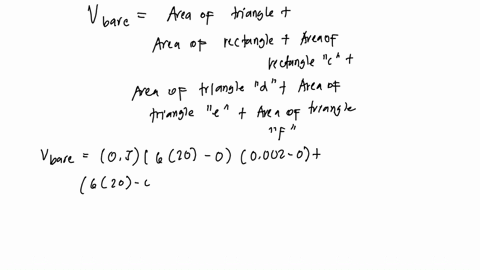 V bare = Area of triangle +
Area of rectangle + Area of
rectangle "c" +
Area of triangle "d" + Area of
triangle "e" + Area of triangle
"f"
V bare = (0.5)(6(20) - 0) (0.002 - 0) +
(6(20) - 0